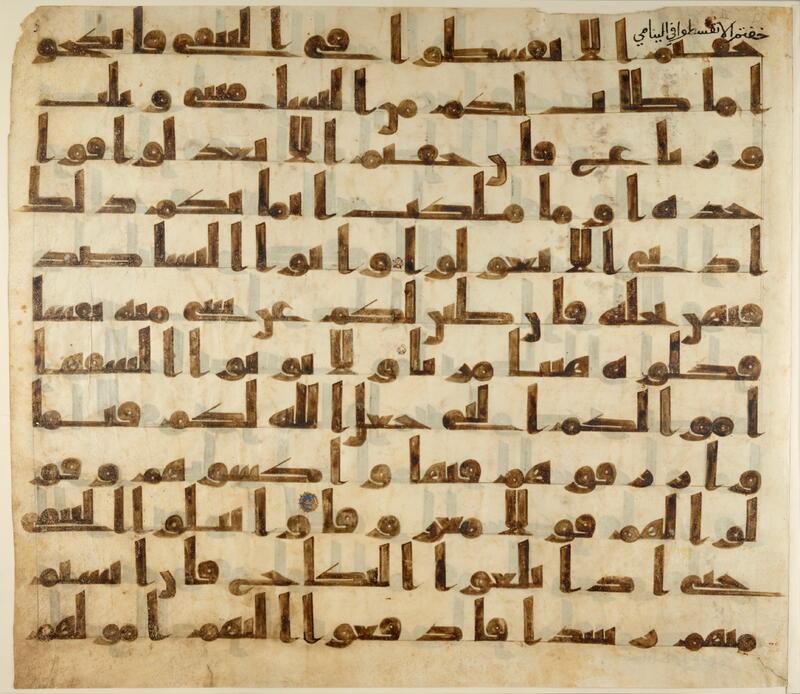 خفتم الا تقسطوا في اليتامى
خفتم الا تقسطوا في اليتمى فانكحو
ا ما طاب لكم من النسا مثنى وثلث
ورباع فان خفتم الا تعدلوا فوا
حده او ما ملكت ايمانكم ذلك
ادنى الا تعولوا واتوا النسا صد
قتهن نحلة فان طبن لكم عن شى منه نفسا
فكلوه هنيا مريا ولا توتوا السفها
اموالكم التى جعل الله لكم قيما
وارزقوهم فيها واكسوهم وقو
لوا لهم قولا معروفا وابتلوا اليتمى
حتى اذا بلغوا النكاح فان انستم
منهم رشدا فادفعوا اليهم امولهم